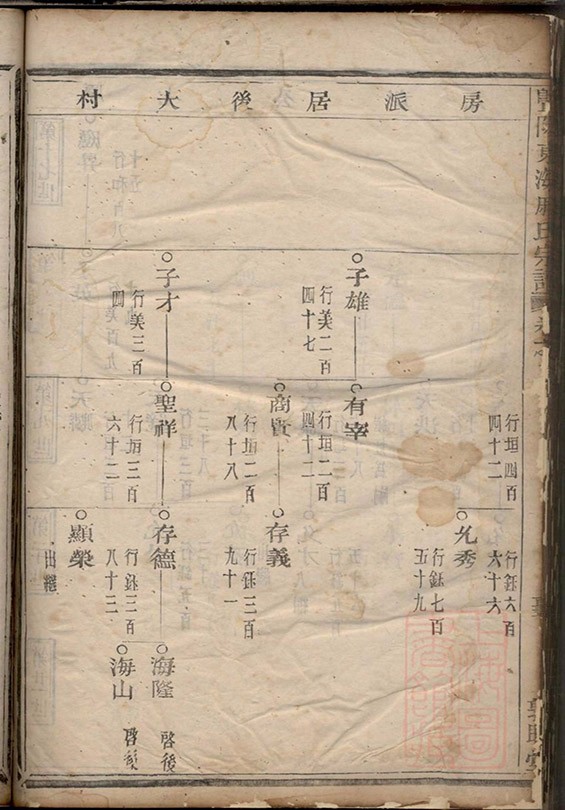 房派居後大村
行垣四百
四十二
行鈺六百
六十六
允秀
行鈺七百
五十九
子雄
行美二百
四十七
有宰
行垣二百
四十二
商貴
行垣二百
八十八
存義
行鈺三百
九十一
子才
行美三百
四
聖祥
行垣三百
六十二
存德
行鈺三百
八十三
海隆
啓後
海山
啓後
顯榮
出繼
東海
氏宗譜